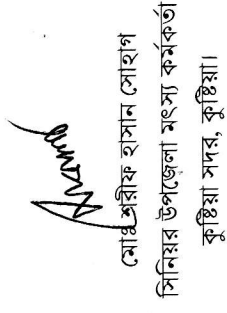 মোঃ শরীফ হাসান সোহাগ
সিনিয়র উপজেলা মৎস্য কর্মকর্তা
কুষ্টিয়া সদর, কুষ্টিয়া।